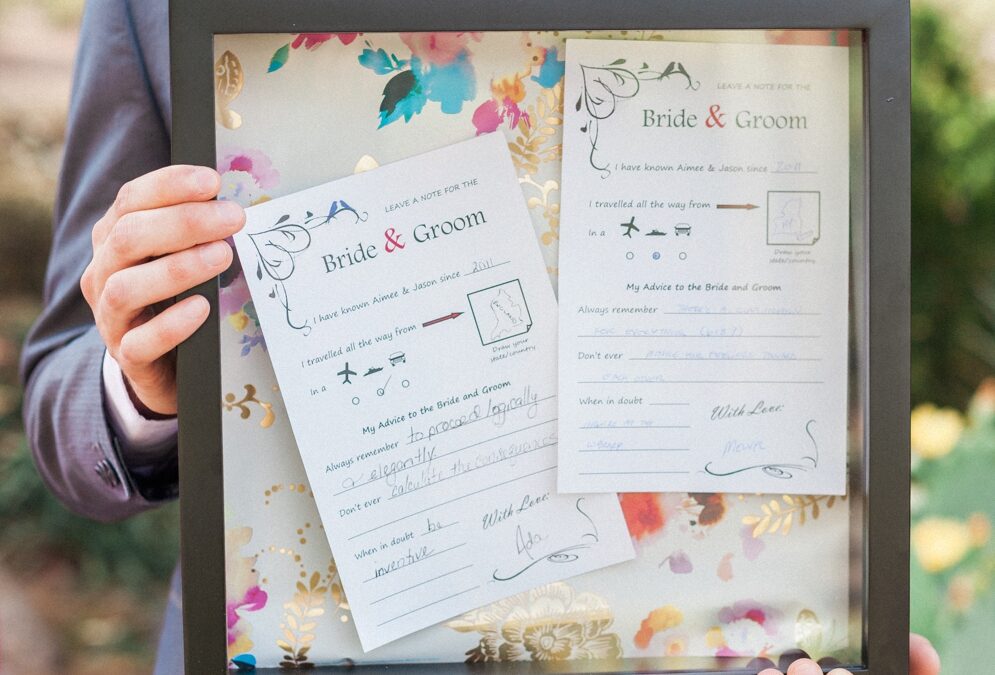 LEAVE A NOTE FOR THE
Bride & Groom
I have known Aimee & Jason since 2011
I travelled all the way from
Draw your
state/country.
In a
My Advice to the Bride and Groom
Always remember to proceed logically
elegantly
Don't ever calculate the consequences
When in doubt be
inventive
With Love:
Ada
LEAVE A NOTE FOR THE
Bride & Groom
I have known Aimee & Jason since 2011
I travelled all the way from
Draw your
state/country.
In a
My Advice to the Bride and Groom
Always remember THERE'S A
FOR EVERYTHING
Don't ever
EACH OTHER
When in doubt
With Love: